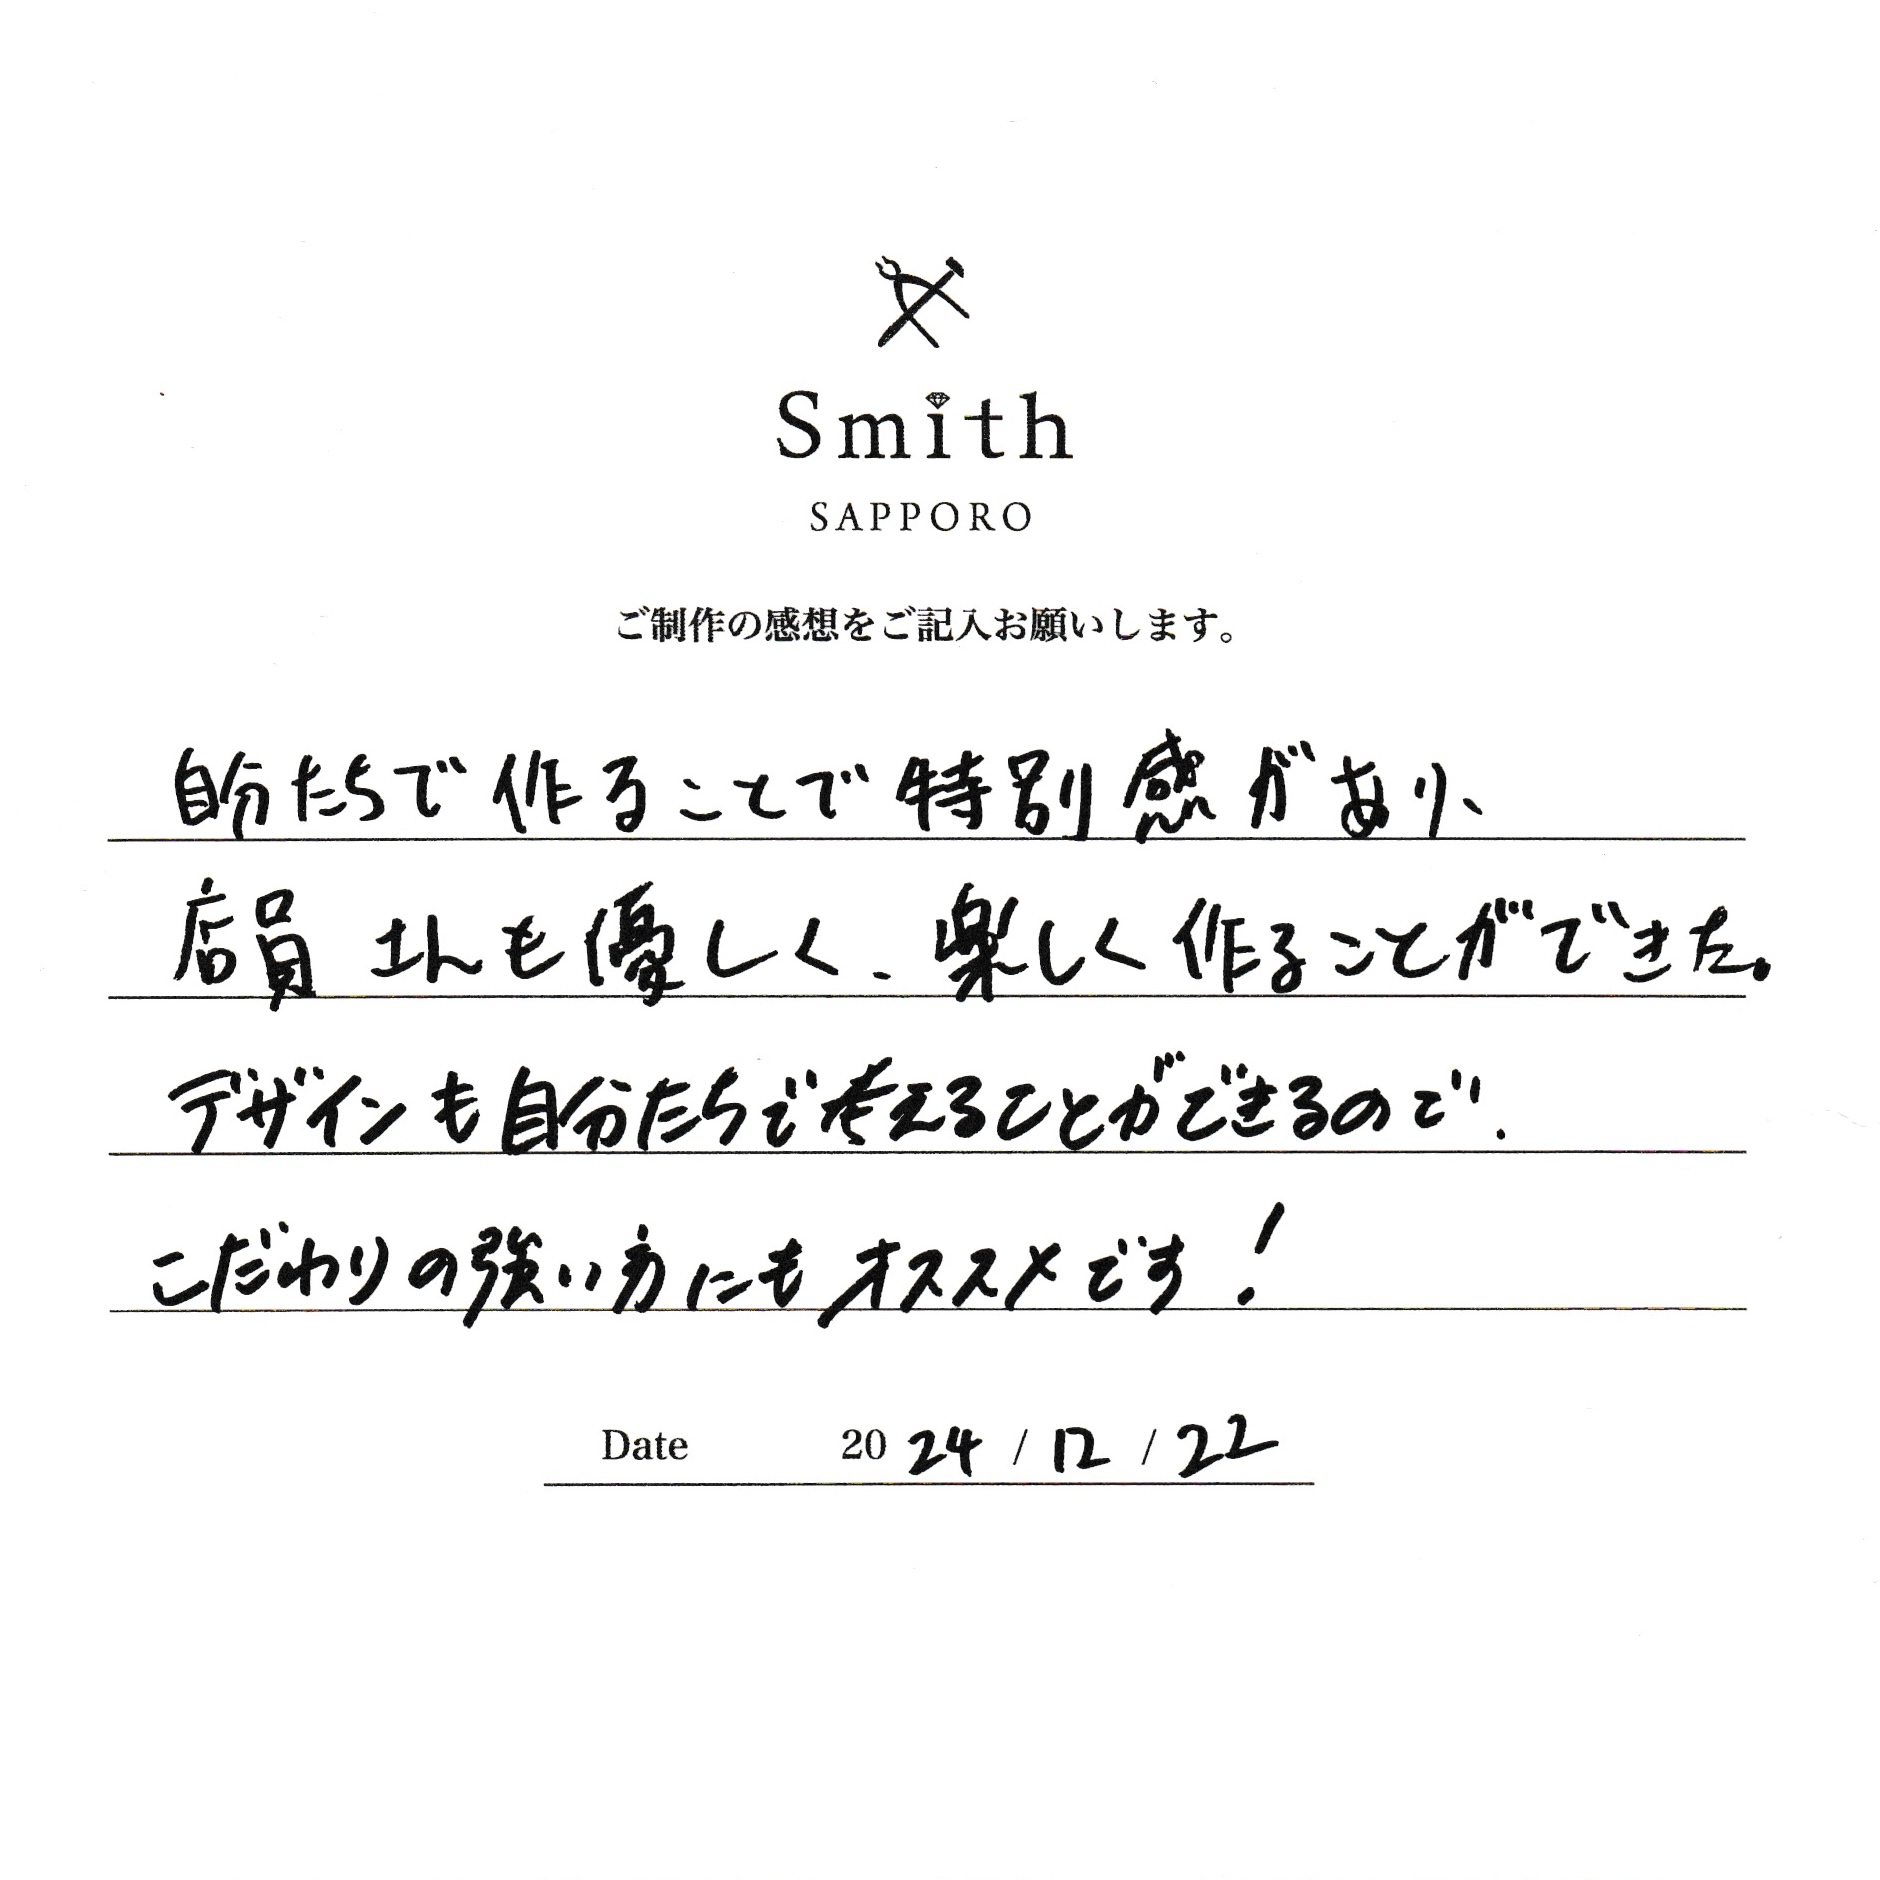 Smith
SAPPORO
ご制作の感想をご記入お願いします。
自分たちで作ることで特別感があり、
店員さんも優しく、楽しく作ることができた。
デザインも自分たちで考えることができるので、
こだわりの強い方にもオススメです!
Date 2024 / 12 / 22